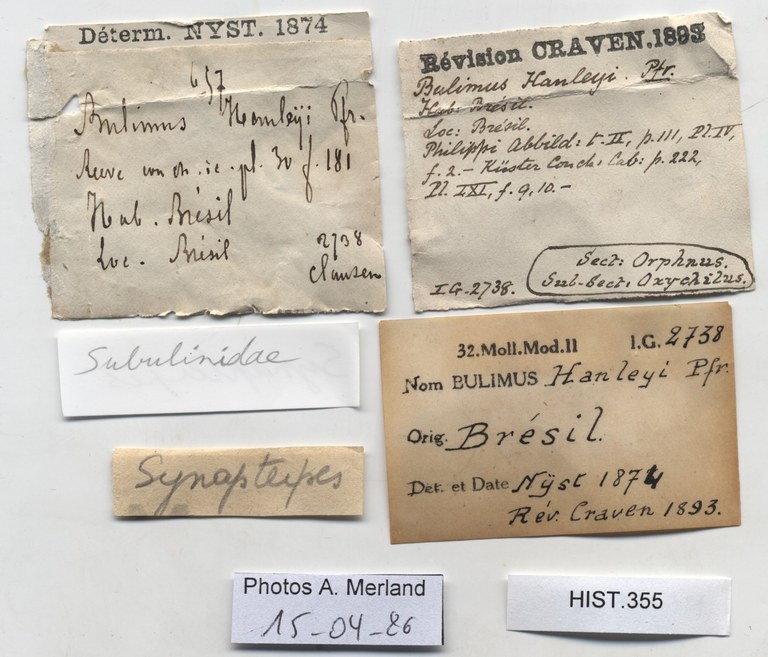 Déterm. NYST. 1874
657
Bulimus Hanleyi Pfr.
Reeve conch. ic. pl. 30 f. 181
Hab. Brésil
Loc. Brésil
2738
Clausen
Révision CRAVEN.1893
Bulimus Hanleyi. Pfr.
Hab: Brésil.
Loc: Brésil.
Philippi Abbild: t. II, p. 111, Pl. IV,
f. 2.- Küster Conch: Cab: p. 222,
Pl. LXI, f. 9, 10.-
I.G. 2738.
Sect: Orphnus.
Sub-Sect: Oxychilus.
Subulinidae
32.Moll.Mod.II I.G. 2738
Nom BULIMUS Hanleyi Pfr.
Orig. Brésil.
Det. et Date Nÿst 1874
Rev. Craven 1893.
Synapterpes
Photos A. Merland
15-04-86
HIST.355